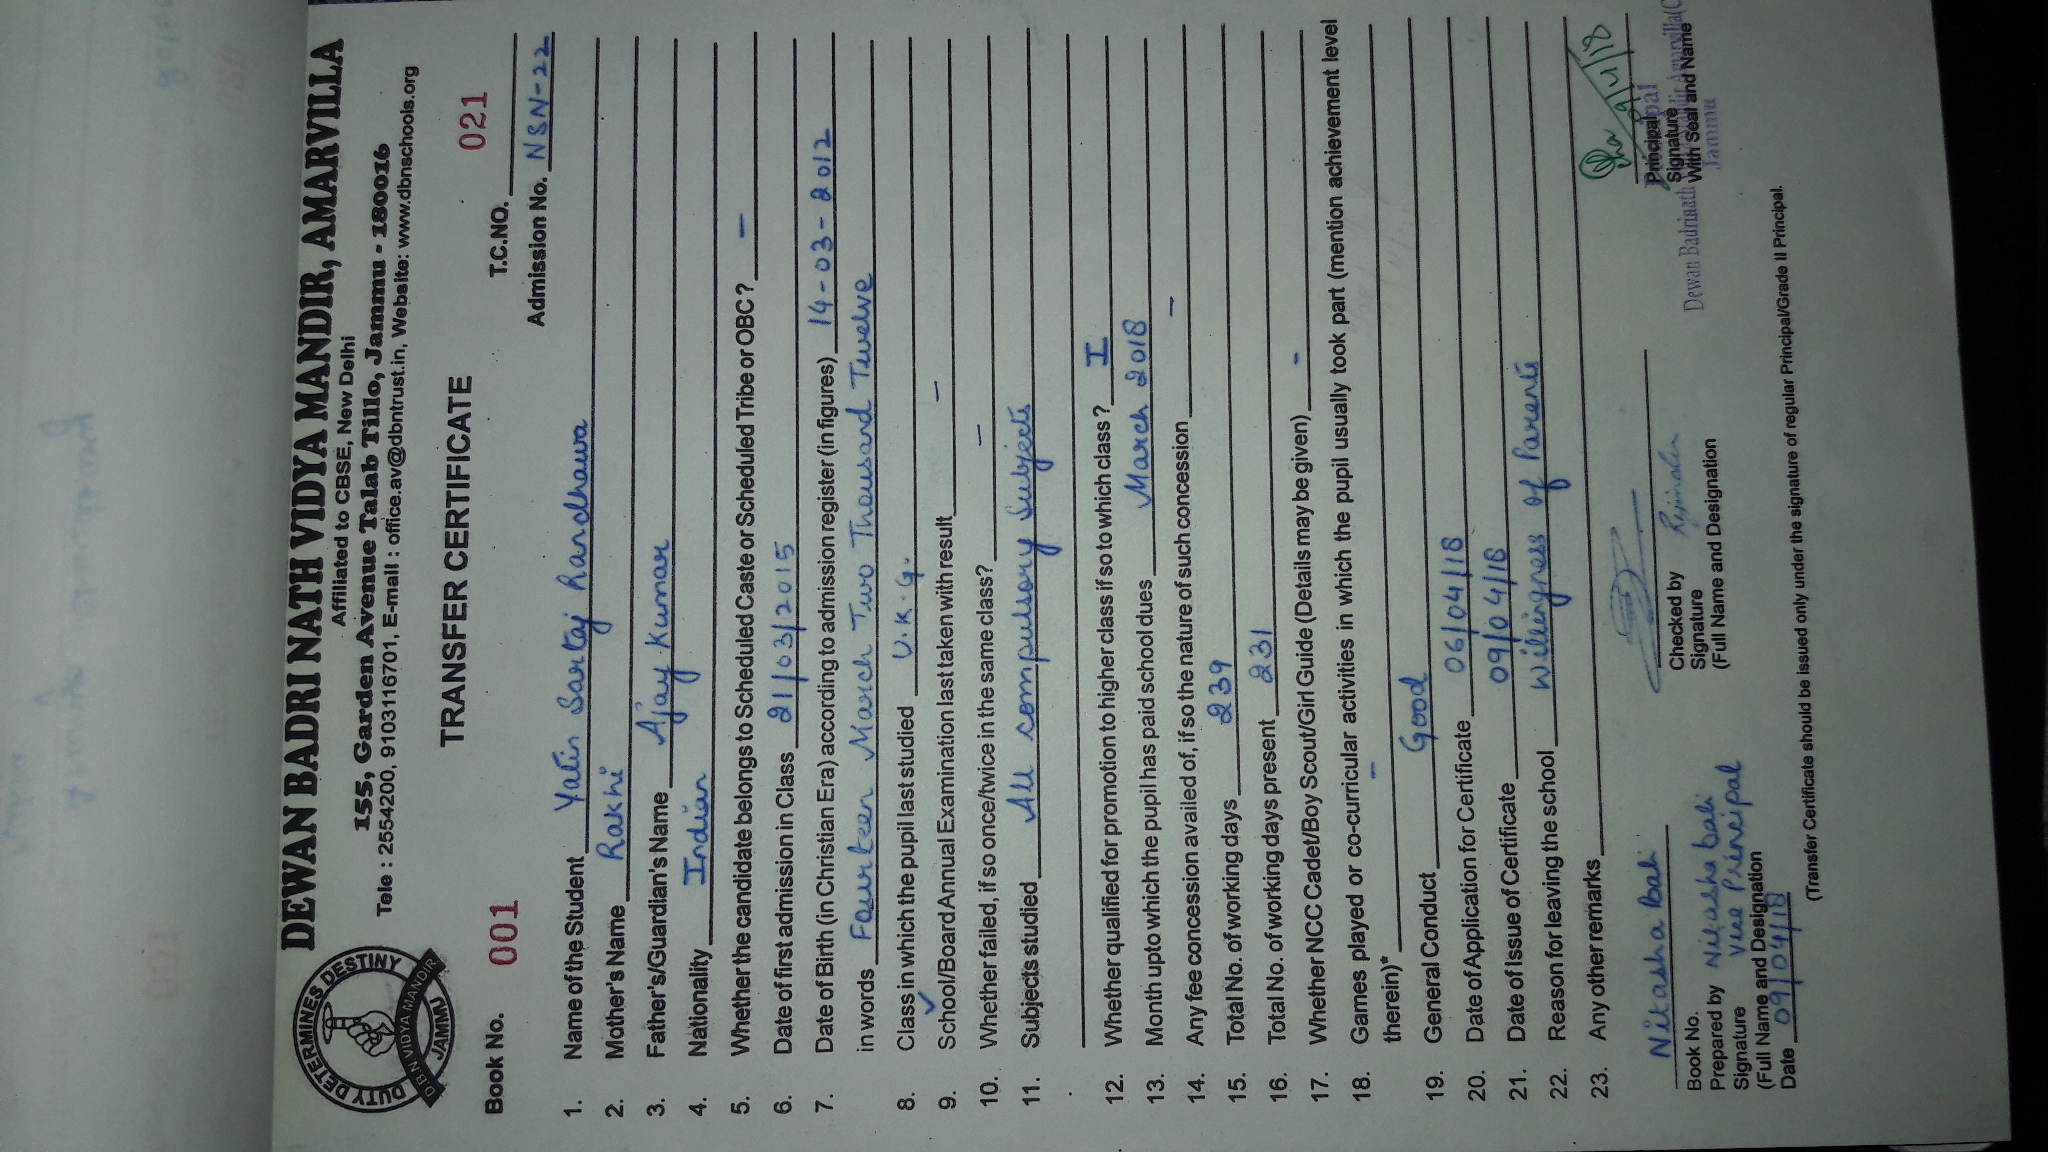 DEWAN BADRI NATH VIDYA MANDIR, AMARVILLA
Affiliated to CBSE, New Delhi
155, Garden Avenue Talab Tillo, Jammu - 180016
Tele : 2554200, 9103116701, E-mail : office.av@dbntrust.in, Website: www.dbnschools.org
DUTY DETERMINES DESTINY
D B N VIDYA MANDIR
JAMMU
TRANSFER CERTIFICATE
Book No. 001 T.C.NO. 021
Admission No. NSN-22
1. Name of the Student Yatin Sartaj Randhawa
2. Mother's Name Rakhi
3. Father's/Guardian's Name Ajay Kumar
4. Nationality Indian
5. Whether the candidate belongs to Scheduled Caste or Scheduled Tribe or OBC? -
6. Date of first admission in Class 21/03/2015
7. Date of Birth (in Christian Era) according to admission register (in figures) 14-03-2012
in words Fourteen March Two Thousand Twelve
8. Class in which the pupil last studied U.K.G.
9. School/Board Annual Examination last taken with result -
10. Whether failed, if so once/twice in the same class? -
11. Subjects studied All compulsory Subjects
12. Whether qualified for promotion to higher class if so to which class? I
13. Month upto which the pupil has paid school dues March 2018
14. Any fee concession availed of, if so the nature of such concession -
15. Total No. of working days 239
16. Total No. of working days present 231
17. Whether NCC Cadet/Boy Scout/Girl Guide (Details may be given) -
18. Games played or co-curricular activities in which the pupil usually took part (mention achievement level
therein)* -
19. General Conduct Good
20. Date of Application for Certificate 06/04/18
21. Date of Issue of Certificate 09/04/18
22. Reason for leaving the school Willingness of Parents
23. Any other remarks
Nitasha Bali
Book No.
Prepared by Nitasha bali
Signature Vice Principal
(Full Name and Designation
Date 09/04/18
Checked by
Signature
(Full Name and Designation
9/4/18
Principal
Signature
With Seal and Name
Principal
Dewan Badrinath
Jammu
(Transfer Certificate should be issued only under the signature of regular Principal/Grade II Principal.